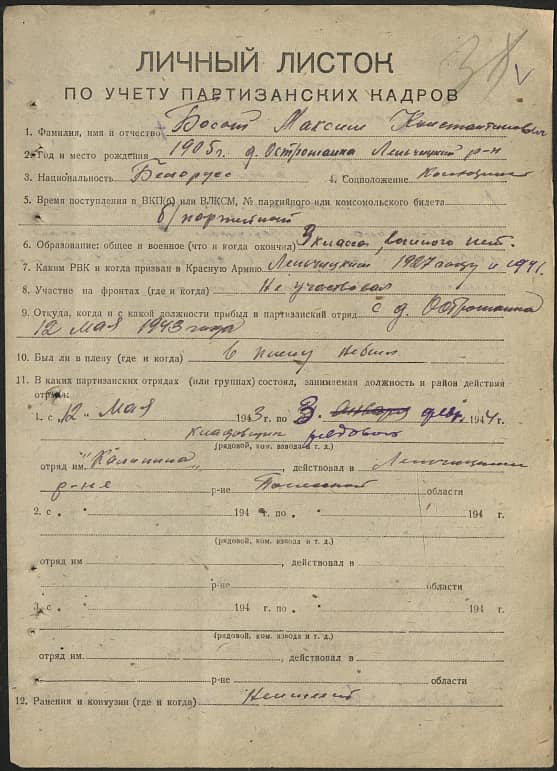 ЛИЧНЫЙ ЛИСТОК
ПО УЧЕТУ ПАРТИЗАНСКИХ КАДРОВ
1. Фамилия, имя и отчество Босот Максим Константинович
2. Год и место рождения 1905 г. д. Острожанка Лельчицкий р-н
3. Национальность Белорус 4. Соцположение
5. Время поступления в ВКП(б) или ВЛКСМ, № партийного или комсомольского билета
б/партейный
6. Образование: общее и военное (что и когда окончил) 3 класса, военного нет.
7. Каким РВК и когда призван в Красную Армию Лельчицким 1927 году и 1941.
8. Участие на фронтах (где и когда) Не участвовал
9. Откуда, когда и с какой должности прибыл в партизанский отряд с д. Острожанка
12 мая 1943 года
10. Был ли в плену (где и когда) в плену небыл
11. В каких партизанских отрядах (или группах) состоял, занимаемая должность и район действия
отряда:
1. с „12" мая 1943 г. по 3. января февр 1944 г.
кладовщик рядовой
(рядовой, ком. взвода и т. д.)
отряд им. "Калинина", действовал в Лельчицким
р-не р-не Полесской области
2. с „ 194 г. по „ 194 г.
(рядовой, ком. взвода и т. д.)
отряд им , действовал в
р-не области
3. с „ 194 г. по „ 194 г.
(рядовой, ком. взвода и т. д.)
отряд им. , действовал в
р-не области
12. Ранения и контузии (где и когда)